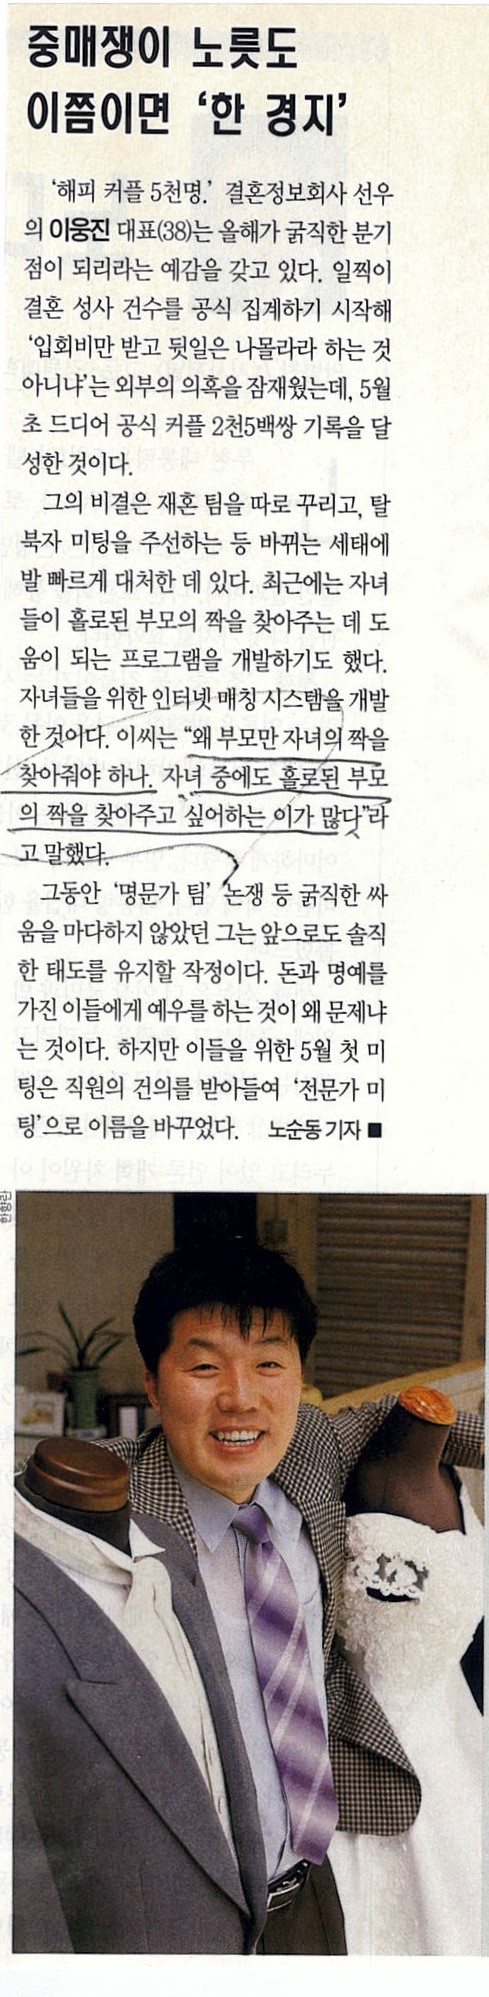 중매쟁이 노릇도
이쯤이면 ‘한 경지’
‘해피 커플 5천명.’ 결혼정보회사 선우
의 이웅진 대표(38)는 올해가 굵직한 분기
점이 되리라는 예감을 갖고 있다. 일찍이
결혼 성사 건수를 공식 집계하기 시작해
‘입회비만 받고 뒷일은 나몰라라 하는 것
아니냐’는 외부의 의혹을 잠재웠는데, 5월
초 드디어 공식 커플 2천5백쌍 기록을 달
성한 것이다.
그의 비결은 재혼 팀을 따로 꾸리고, 탈
북자 미팅을 주선하는 등 바뀌는 세태에
발 빠르게 대처한 데 있다. 최근에는 자녀
들이 홀로된 부모의 짝을 찾아주는 데 도
움이 되는 프로그램을 개발하기도 했다.
자녀들을 위한 인터넷 매칭 시스템을 개발
한 것이다. 이씨는 “왜 부모만 자녀의 짝을
찾아줘야 하나. 자녀 중에도 홀로된 부모
의 짝을 찾아주고 싶어하는 이가 많다”라
고 말했다.
그동안 ‘명문가 팀’ 논쟁 등 굵직한 싸
움을 마다하지 않았던 그는 앞으로도 솔직
한 태도를 유지할 작정이다. 돈과 명예를
가진 이들에게 예우를 하는 것이 왜 문제냐
는 것이다. 하지만 이들을 위한 5월 첫 미
팅은 직원의 건의를 받아들여 ‘전문가 미
팅’으로 이름을 바꾸었다. 노순동 기자 ■